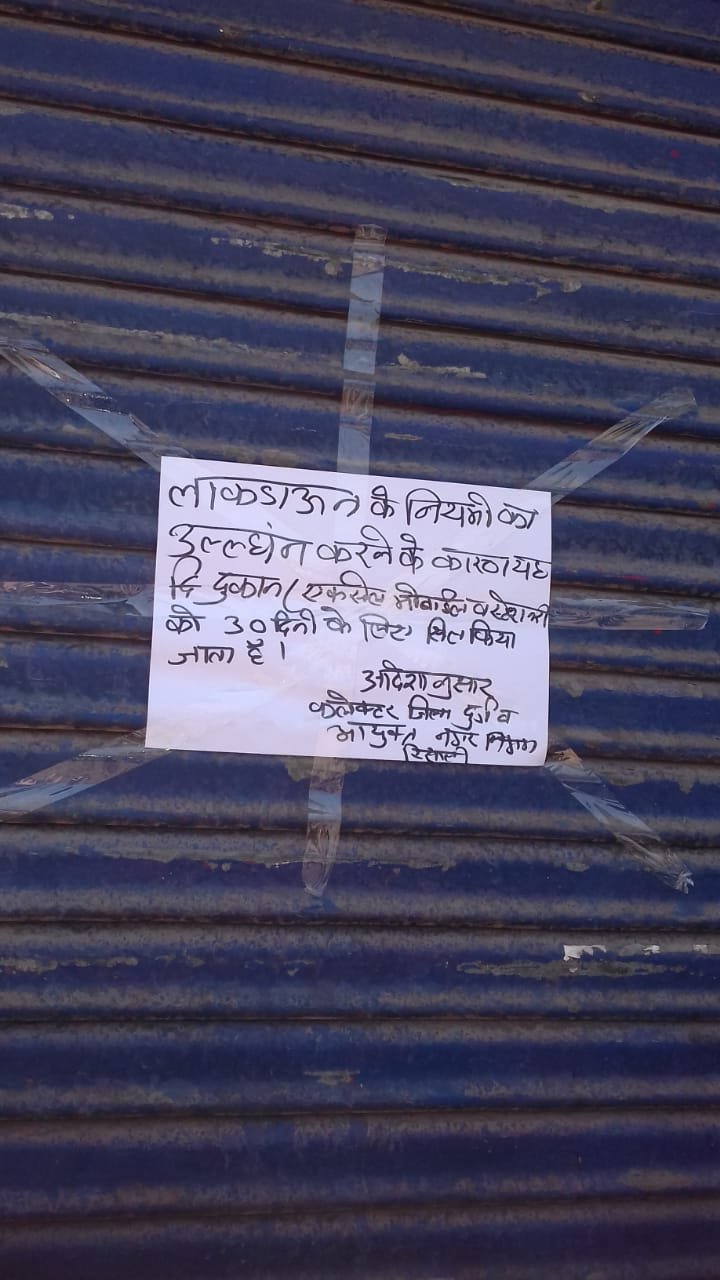 लाकडाऊन के नियमो का
उल्लघंन करने के कारण यह
दि दुकान/एकसेल मोबाईल व स्टेशनरी
को 30 दिनो के लिए सिल किया
जाता है।
आदेशानुसार
कलेक्टर जिला दुर्ग व
आयुक्त नगर निगम
रिसाली